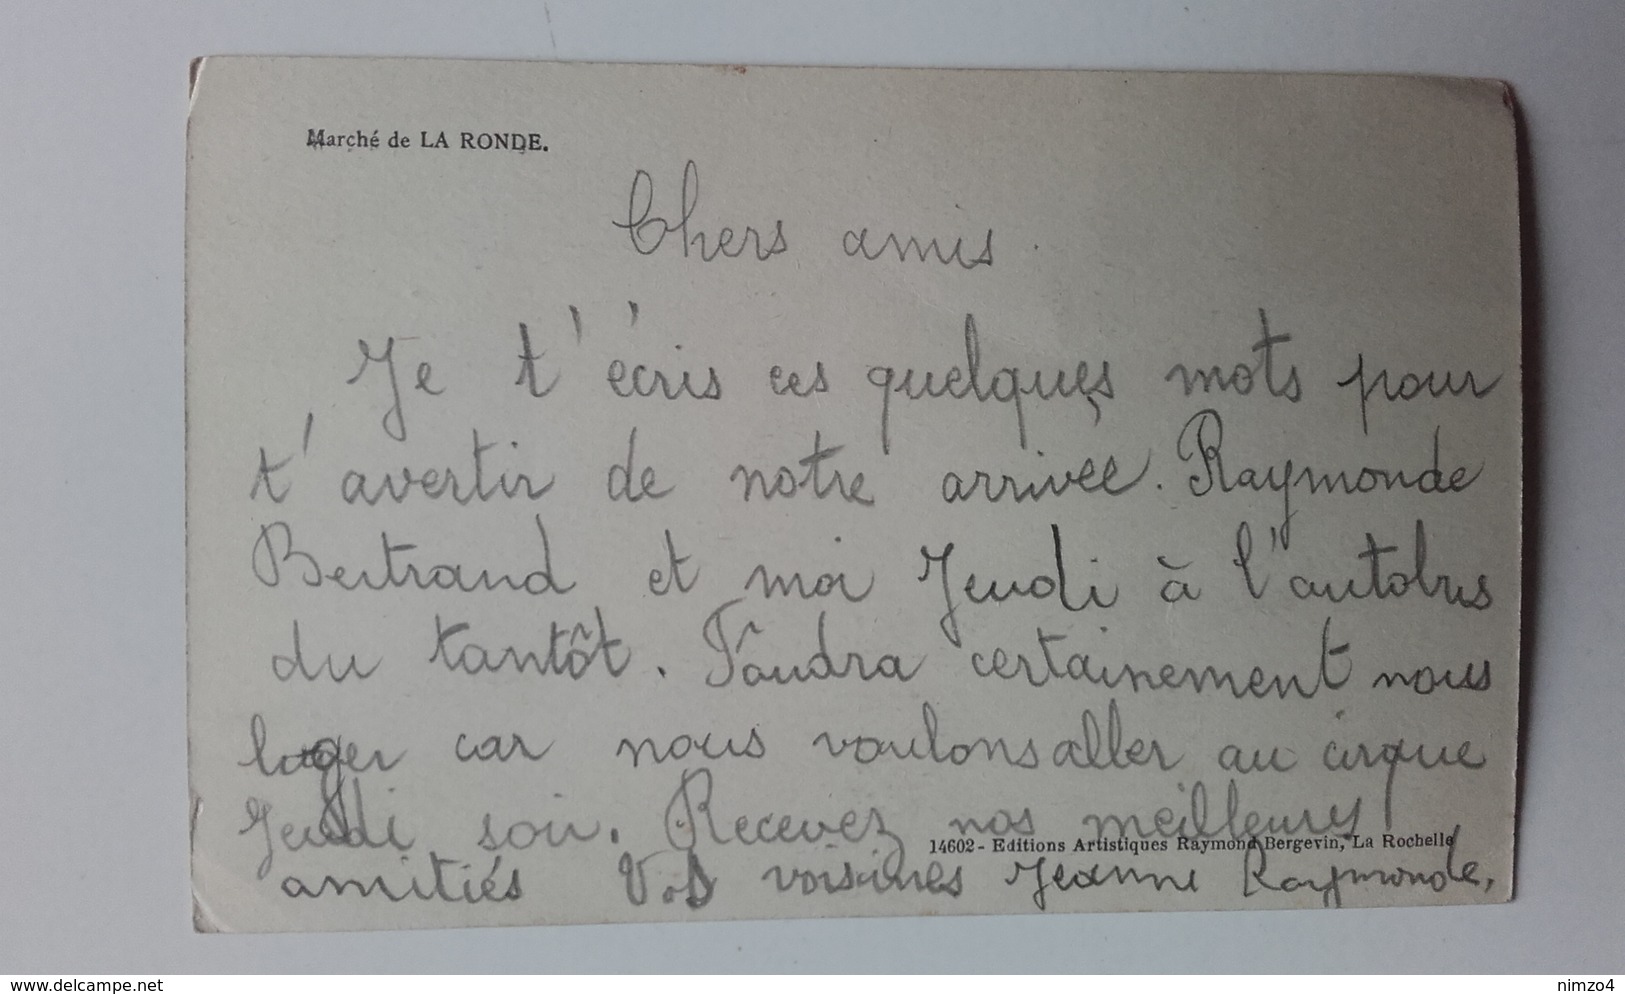 Marché de LA RONDE.
Chers amis
Je t'écris ces quelques mots pour
t'avertir de notre arrivée. Raymonde
Bertrand et moi Jeudi à l'autobus
du tantôt. Faudra certainement nous
loger car nous voulons aller au cirque
Jeudi soir. Recevez nos meilleures
14602 - Editions Artistiques Raymond Bergevin, La Rochelle
amitiés Vos voisines Jeanne Raymonde,
www.delcampe.net
nimzo4